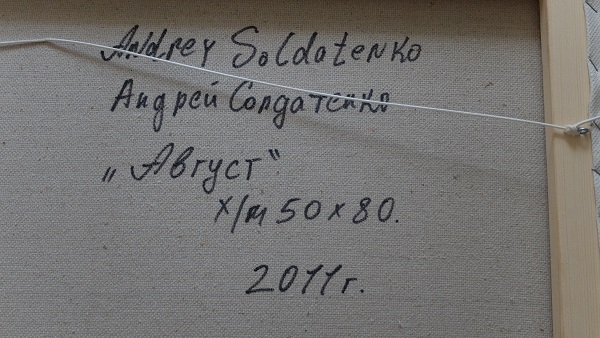 Andrey Soldatenko
Андрей Солдатенко
„Август“
х/м 50 x 80.
2011г.